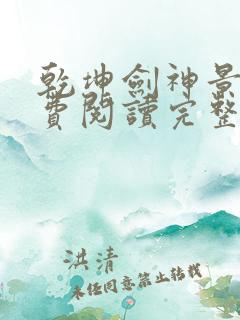 乾坤劍神景
費閱讀完整
洪清
未經同意禁止轉載